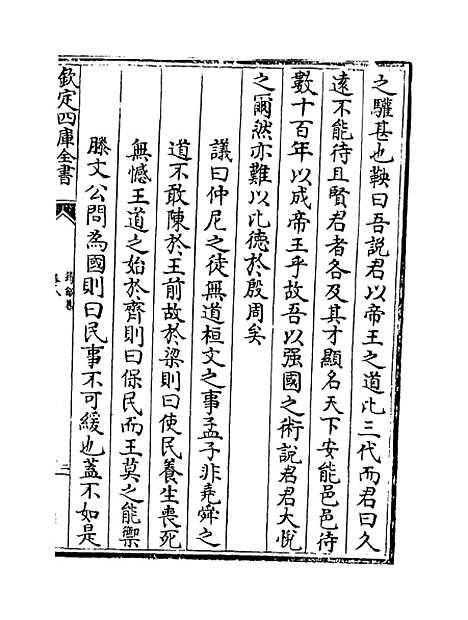 之驩甚也鞅曰吾說君以帝王之道比三代而君曰久
遠不能待且賢君者各及其才顯名天下安能邑邑待
數十百年以成帝王乎故吾以强國之術說君君大悅
之爾然亦難以比德於殷周矣
議曰仲尼之徒無道桓文之事孟子非堯舜之
道不敢陳於王前故於梁則曰使民養生喪死
無憾王道之始於齊則曰保民而王莫之能禦
滕文公問為國則曰民事不可緩也蓋不如是
欽定四庫全書
卷八
三